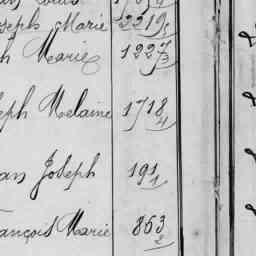 Joseph Marie 3319
ph Marie 1227
3
eph Melaine 1718
4
an Joseph 191
1
ançois Marie 853
2